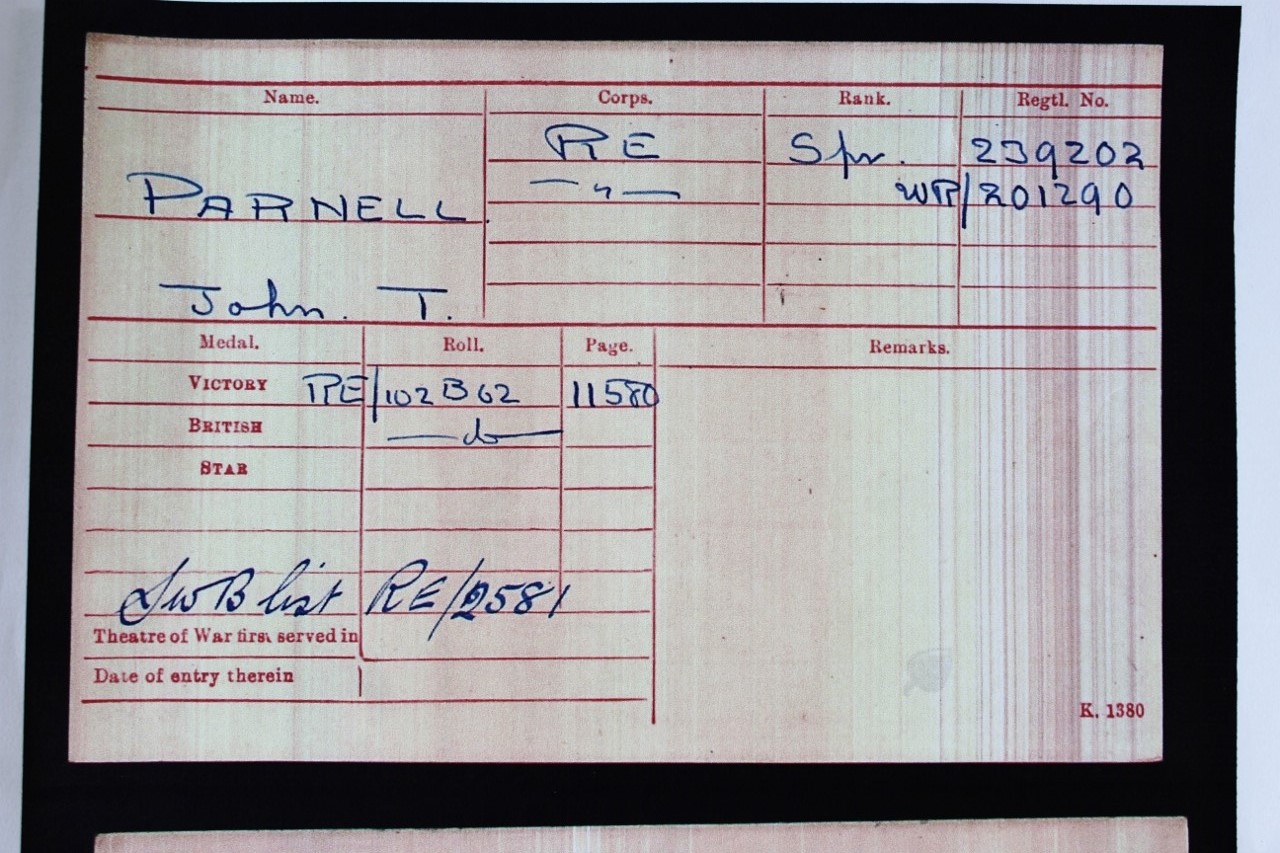 Name. Corps. Rank. Regtl. No.
RE Spr. 239202
PARNELL. —"— WR/201290
John. T.
Medal. Roll. Page. Remarks.
VICTORY RE/102 B62 11580
BRITISH —do—
STAR
SWB list RE/2581
Theatre of War first served in
Date of entry therein
K. 1380